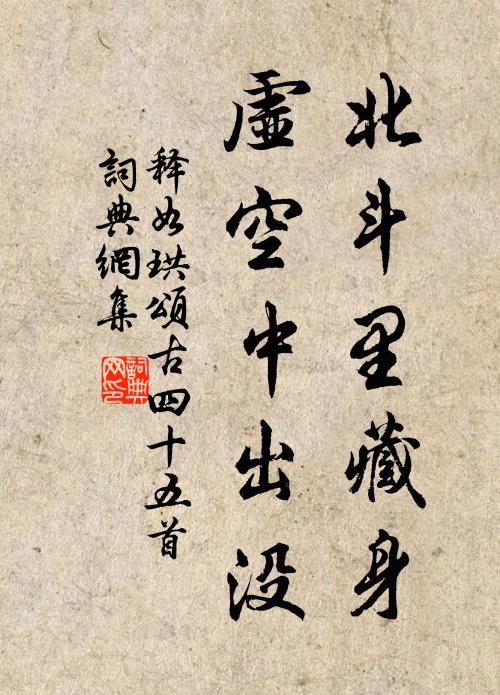 北斗里藏身
虚空中出没
释如珙颂古四十五首
詞典網集
詞典網印